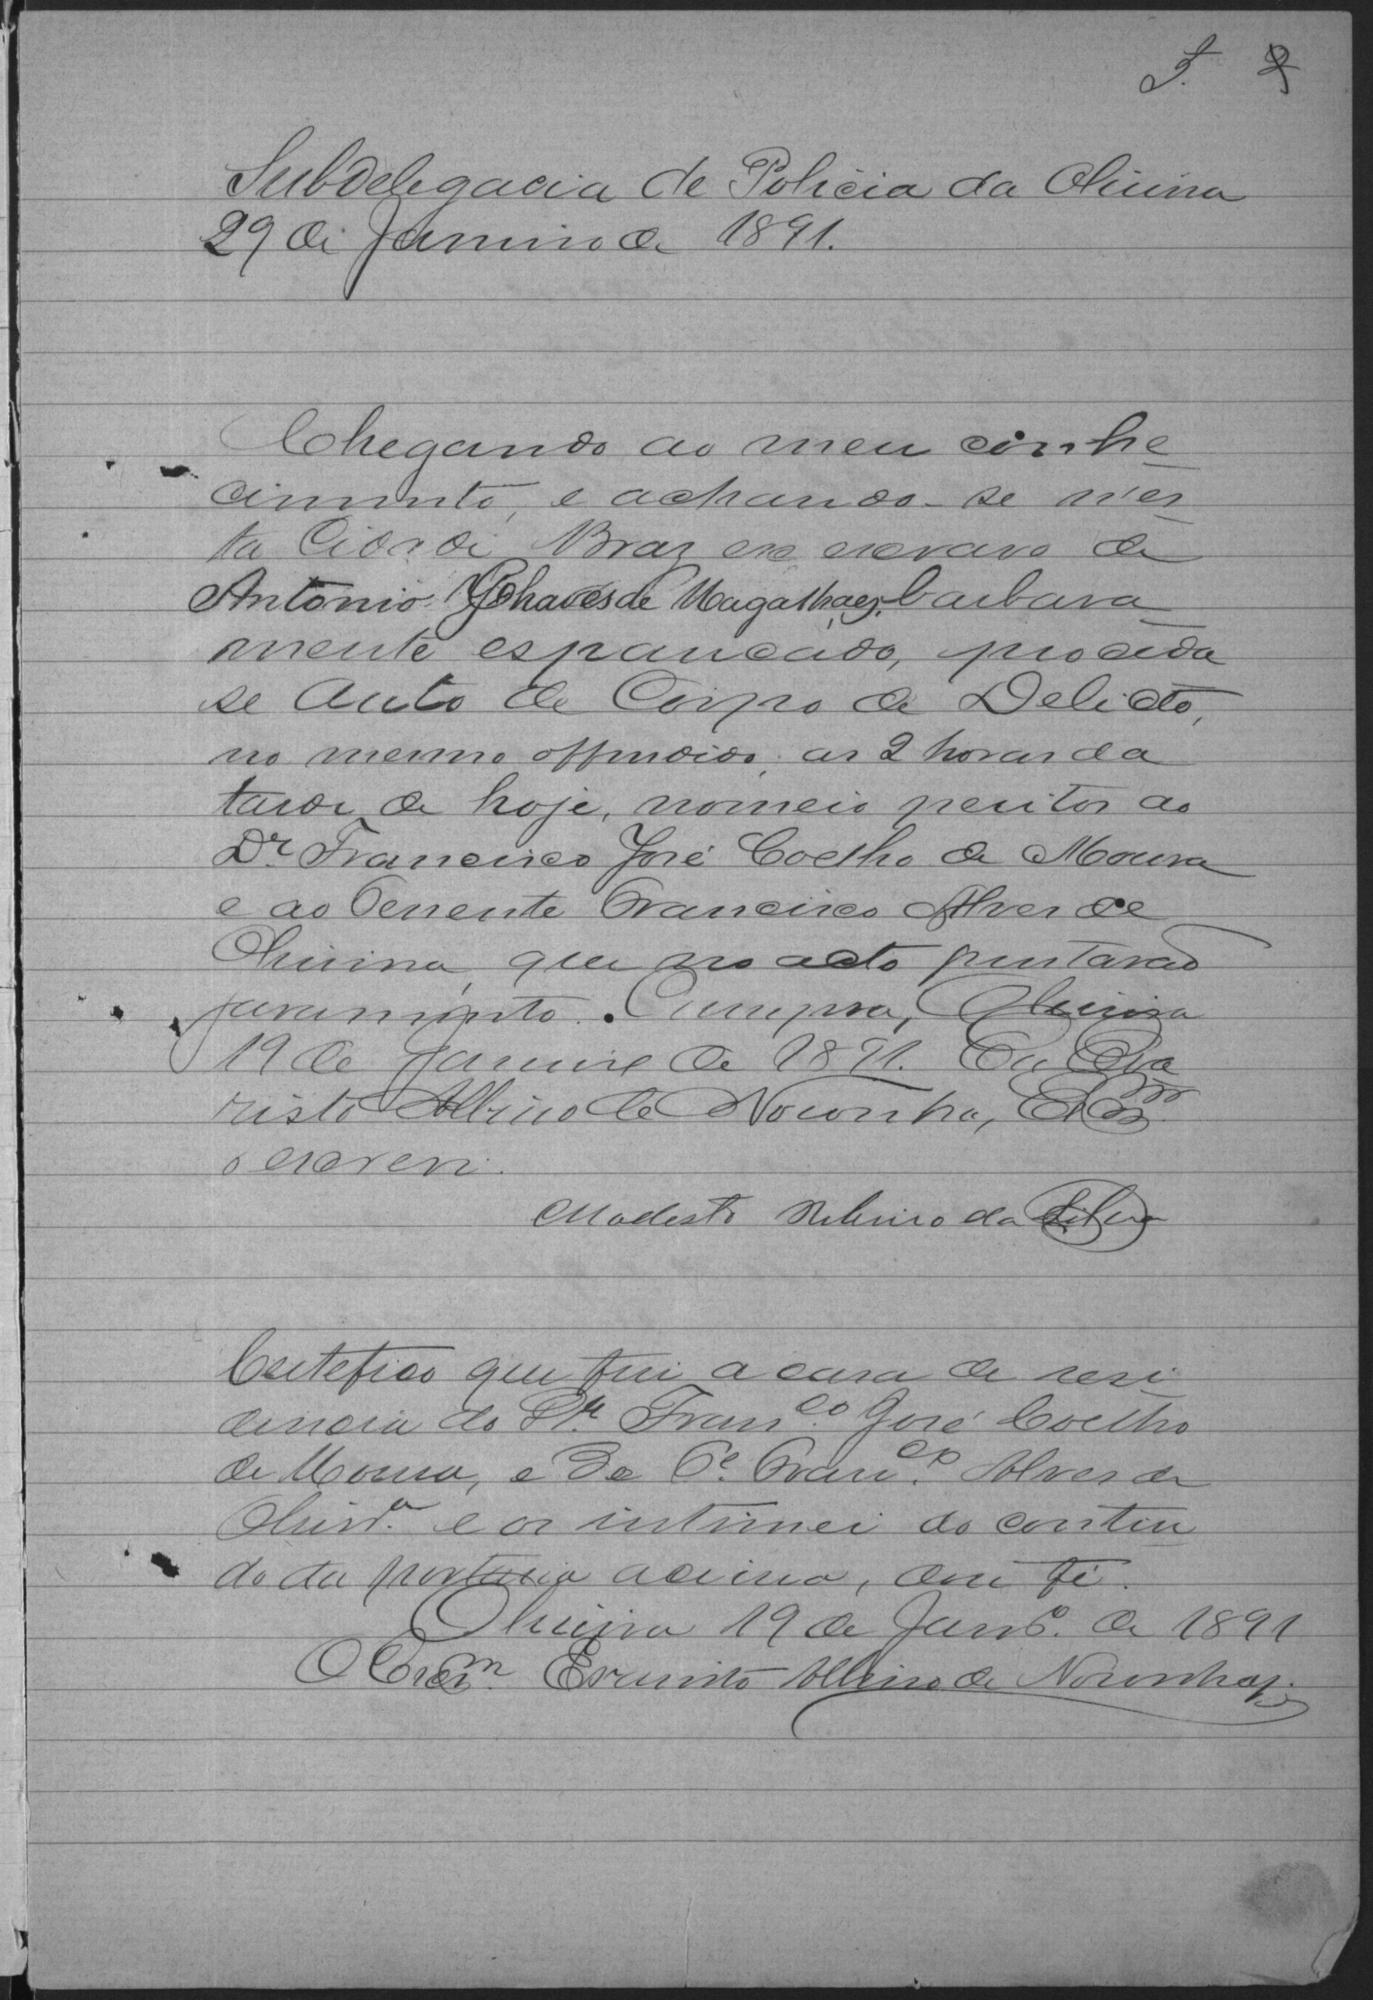 F. 2
Subdelegacia de Policia da Oliveira
29 de Janeiro de 1891.
Chegando ao meu conhe
cimento, e achando-se n'es
ta Cidade Braz ex escravo de
Antonio Chaves de Magalhaes, barbara
mente espancado, proceda
se Auto de Corpo de Delicto,
no mesmo offendido, as 2 horas da
tarde de hoje, nomeio peritos ao
Dr. Francisco José Coelho de Moura
e ao Tenente Francisco Alves de
Oliveira, que no acto prestarão
juramento. Cumpra, Oliveira
19 de Janeiro de 1891. Eu Eva
risto Albino de Noronha, Escm.
o escrevi.
Modesto Ribeiro da Silva
Certefico que fui a casa de resi
dencia do Dr. Franco. José Coelho
de Moura, e do Te. Franco. Alves de
Olivra. e os intimei do conteu
do da portaria acima, dou fé.
Oliveira 19 de Janro. de 1891
O Escm. Evaristo Albino de Noronha